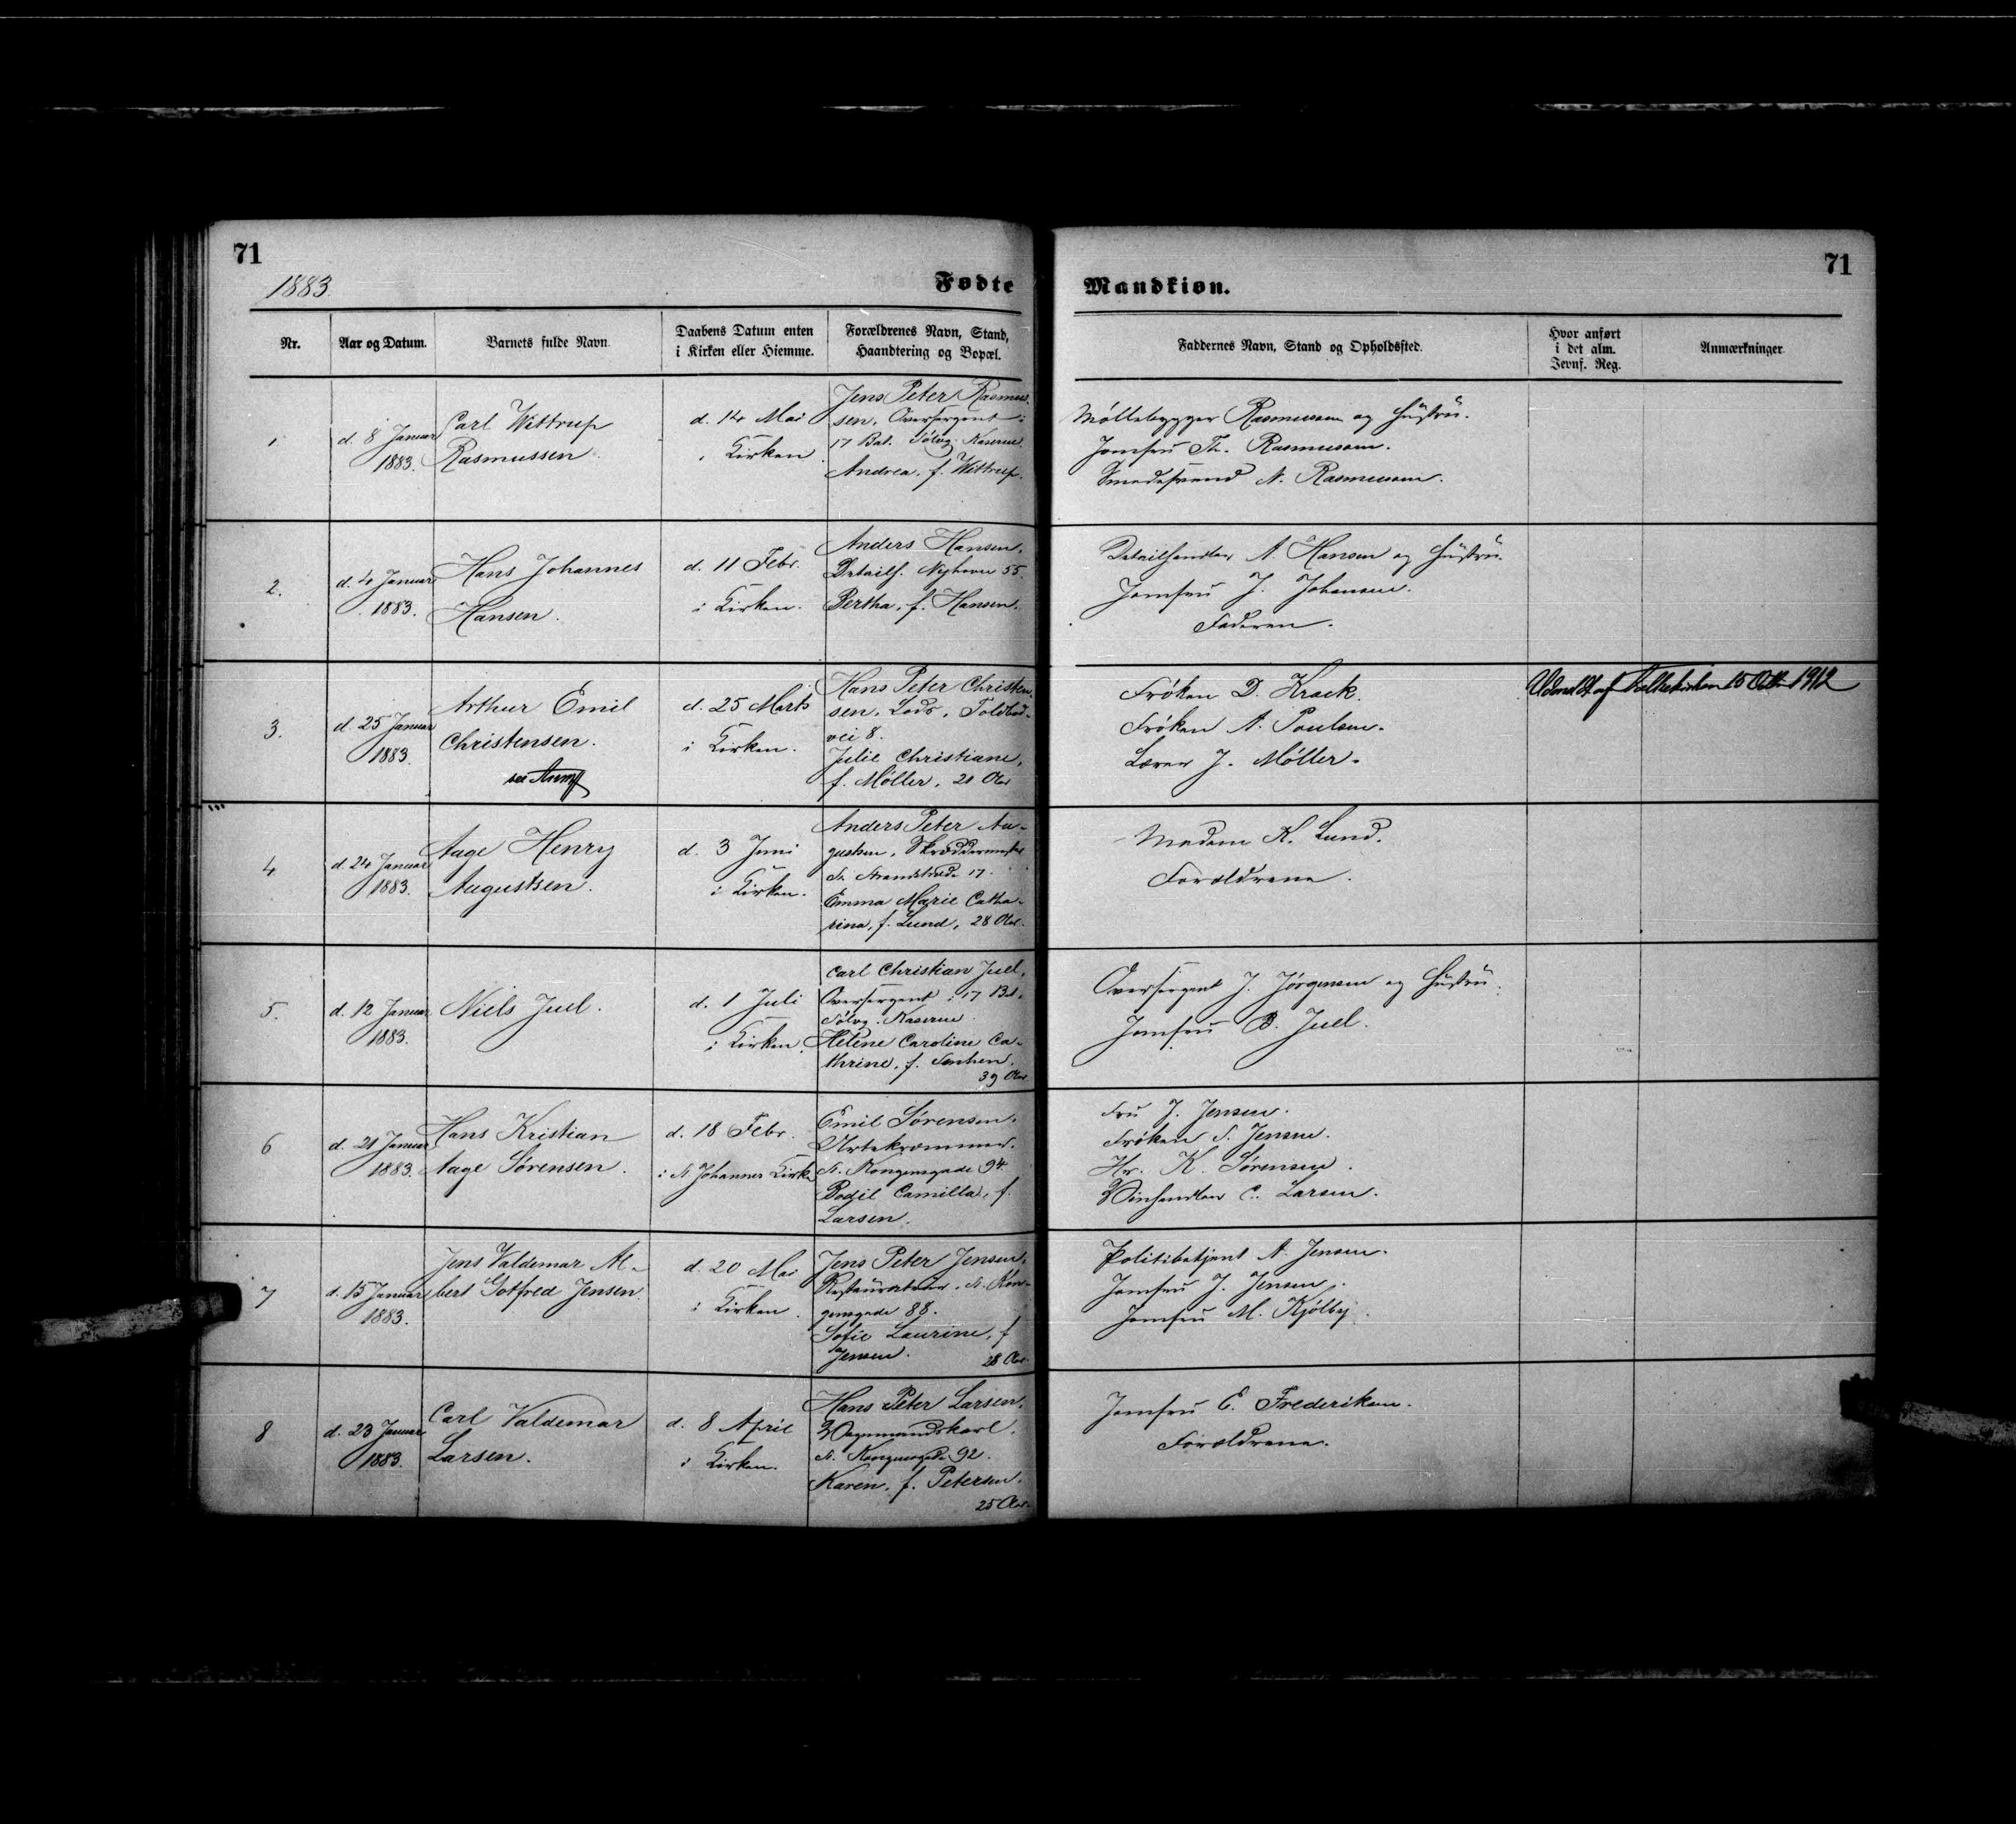 71
1883.
Fødte
Nr.
Aar og Datum.
Barnets fulde Navn.
Daabens Datum enten
i Kirken eller Hiemme.
Forældrenes Navn, Stand,
Haandtering og Bopæl.
1
d. 8 Januar
1883.
Carl Wittrup
Rasmussen.
d. 14 Mai
i Kirken.
Jens Peter Rasmus-
sen, Oversergent i
17 Bat. Sølvg. Kaserne.
Andrea, f. Wittrup.
2.
d. 4 Januar
1883.
Hans Johannes
Hansen.
d. 11 Febr.
i Kirken.
Anders Hansen,
Detailh. Nyhavn 55.
Bertha, f. Hansen.
3.
d. 25 Januar
1883.
Arthur Emil
Christensen.
see Anmf
d. 25 Marts
i Kirken.
Hans Peter Christen-
sen, Lods, Toldbod-
vei 8.
Julie Christiane,
f. Møller, 21 Aar
4
d. 24 Januar
1883.
Aage Henry
Augustsen.
d. 3 Juni
i Kirken.
Anders Peter Au-
gustsen, Skræddermester
St. Strandstræde 17.
Emma Marie Catha-
rina, f. Lund, 28 Aar.
5.
d. 12 Januar
1883.
Niels Juel.
d. 1 Juli
i Kirken.
Carl Christian Juel,
Oversergent i 17 Bat.
Sølvg. Kaserne.
Helene Caroline Ca-
thrine, f.
39 Aar
6
d. 21 Januar
1883.
Hans Kristian
Aage Sørensen.
d. 18 Febr.
i St Johannes Kirke
Emil Sørensen.
Urtekræmmer.
St. Kongensgade 94.
Bodil Camilla, f.
Larsen.
7
d. 15 Januar
1883.
Jens Valdemar Al-
bert Gotfred Jensen.
d. 20 Mai
i Kirken.
Jens Peter Jensen,
Restauratør, St. Kon-
gensgade 88.
Sofie Laurine, f
Jensen.
28 Aar.
8
d. 23 Januar
1883.
Carl Valdemar
Larsen.
d. 8 April
i Kirken.
Hans Peter Larsen,
Vognmandskarl,
St. Kongensgade 92.
Karen, f. Petersen.
25 Aar.
71
Mandkiøn.
Faddernes Navn, Stand og Opholdssted.
Hvor anført
i det alm.
Jevnf. Reg.
Anmærkninger
Møllebygger Rasmussen og Hustru.
Jomfru Th. Rasmussen.
Smedesvend N. Rasmussen.
Detailhandler A. Hansen og Hustru.
Jomfru J. Johansen.
Faderen.
Frøken D. Krack.
Frøken A. Poulsen.
Lærer J. Møller.
Udmeldt af Folkekirken 15 Oktr 1912
Madam K. Lund.
Forældrene.
Oversergent J. Jørgensen og Hustru.
Jomfru B. Juel.
Fru J. Jensen.
Frøken S. Jensen.
Hr. K. Sørensen.
Vinhandler C. Larsen.
Politibetjent A. Jensen.
Jomfru J. Jensen.
Jomfru M. Kjølby.
Jomfru E. Frederiksen.
Forældrene.